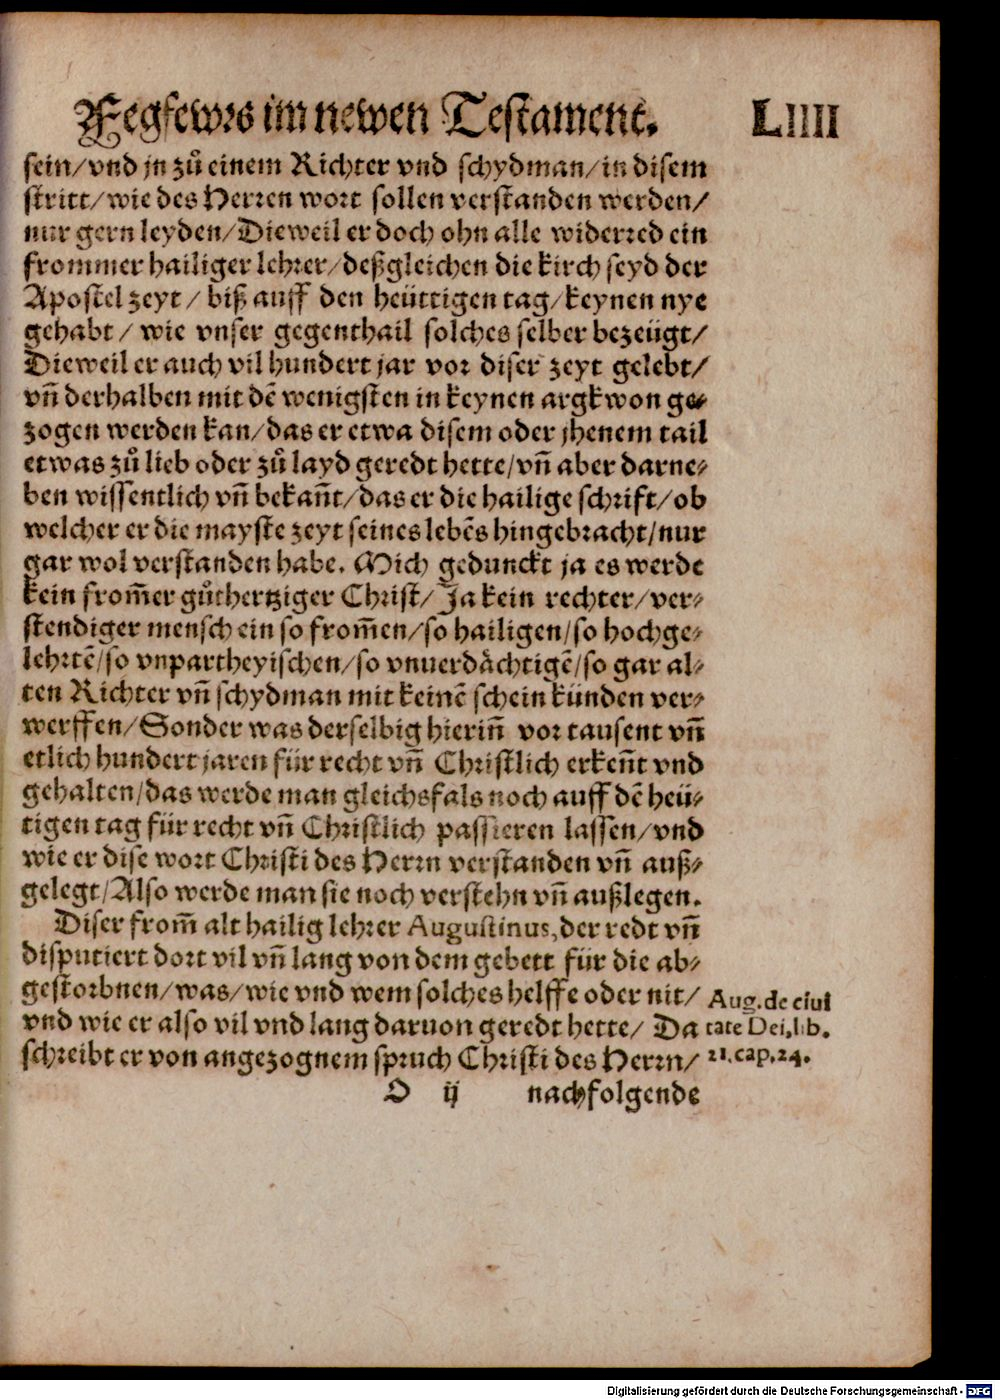 Fegfewrs im newen Testament. LIIII
sein/vnd jn zů einem Richter vnd schydman/in disem
stritt/wie des Herren wort sollen verstanden werden/
nur gern leyden/Dieweil er doch ohn alle widerred ein
frommer hailiger lehrer/deßgleichen die kirch seyd der
Apostel zeyt/ biß auff den heüttigen tag/keynen nye
gehabt/ wie vnser gegenthail solches selber bezeügt/
Dieweil er auch vil hundert jar vor diser zeyt gelebt/
vñ derhalben mit dẽ wenigsten in keynen argkwon ge⸗
zogen werden kan/das er etwa disem oder jhenem tail
etwas zů lieb oder zů layd geredt hette/vñ aber darne⸗
ben wissentlich vñ bekañt/das er die hailige schrift/ob
welcher er die mayste zeyt seines lebẽs hingebracht/nur
gar wol verstanden habe. Mich gedunckt ja es werde
kein from̃er gůthertziger Christ/Ja kein rechter/ver⸗
stendiger mensch ein so from̃en/so hailigen/so hochge⸗
lehrtẽ/so vnpartheyischen/so vnuerdächtigẽ/so gar al⸗
ten Richter vñ schydman mit keinẽ schein künden ver⸗
werffen/Sonder was derselbig hieriñ vor tausent vñ
etlich hundert jaren für recht vñ Christlich erkeñt vnd
gehalten/das werde man gleichsfals noch auff dẽ heü⸗
tigen tag für recht vñ Christlich passieren lassen/vnd
wie er dise wort Christi des Herrn verstanden vñ auß⸗
gelegt/Also werde man sie noch verstehn vñ außlegen.
Diser from̃ alt hailig lehrer Augustinus, der redt vñ
disputiert dort vil vñ lang von dem gebett für die ab⸗
gestorbnen/was/wie vnd wem solches helffe oder nit/
vnd wie er also vil vnd lang daruon geredt hette/ Da
schreibt er von angezognem spruch Christi des Herrn/
Aug. de ciui
tate Dei, lib.
21. cap. 24.
O ij nachfolgende
Digitalisierung gefördert durch die Deutsche Forschungsgemeinschaft - DFG